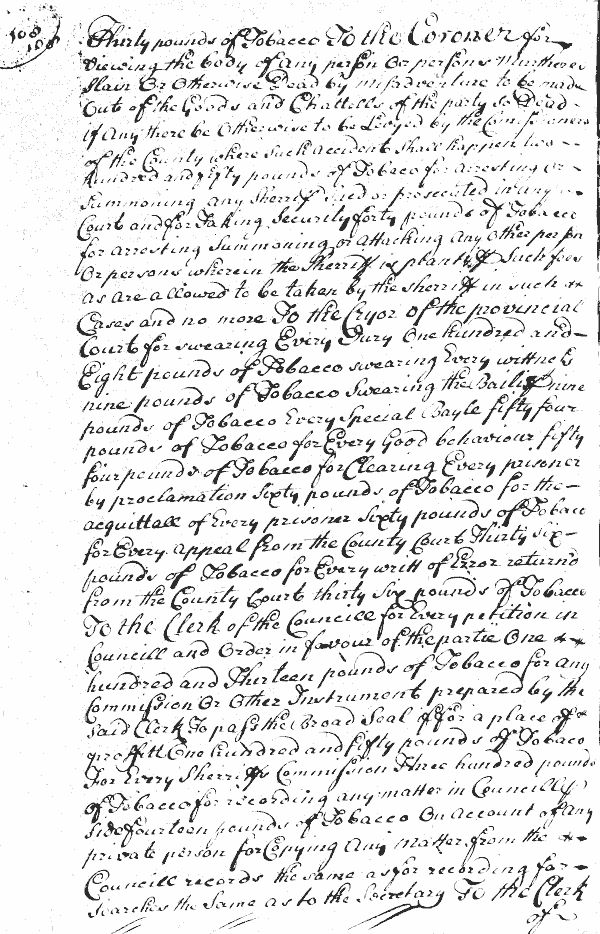 108
108
Thirty pounds of Tobacco To the Coroner for
viewing the body of any person Or persons Murthered
Slain Or Otherwise Dead by misadventure to be made
Out of the Goods and Chattells of the party so Dead
if Any there be Otherwise to be Levyed by the Comissioners
of the County where such accident Shall happen two
hundred and fifty pounds of Tobaco for arresting or
Summoning any Sherriff Sued or prosecuted in any
Court and for Taking Security forty pounds of Tobacco
for arresting Summoning or attacking Any Other person
Or persons wherein the Sherriff is plantiff Such fees
as are allowed to be taken by the sherriff in such
Cases and no more To the Cryor of the provincial
Court for swearing Every Jury One hundred and
Eight pounds of Tobacco swearing Every wittness
nine pounds of Tobacco Swearing the Bailiff nine
pounds of Tobacco Every Special Bayle fifty four
pounds of Tobacco for Every Good behaviour fifty
four pounds of Tobacco for Clearing Every prisoner
by proclamation Sixty pounds of Tobacco for the
acquittall of Every prisoner Sixty pounds of Tobaco
for Every appeal from the County Court Thirty six
pounds of Tobacco for Every writt of Error return'd
from the County Court thirty Six pounds of Tobacco
To the Clerk of the Councill for Every petition in
Councill and Order in favour of the partie One
hundred and Thirteen pounds of Tobacco for any
Commission Or Other Instrument prepared by the
said Clerk To pass the Broad Seal for a place of
proffitt One hundred and fifty pounds of Tobaco
For Every Sherriffs Commission Three hundred pounds
of Tobacco for recording any matter in Councill
side fourteen pounds of Tobacco On Account of Any
private person for Copying Any matter from the
Councill records the same as for recording for
searches the same as to the Secretary To the Clerk
of